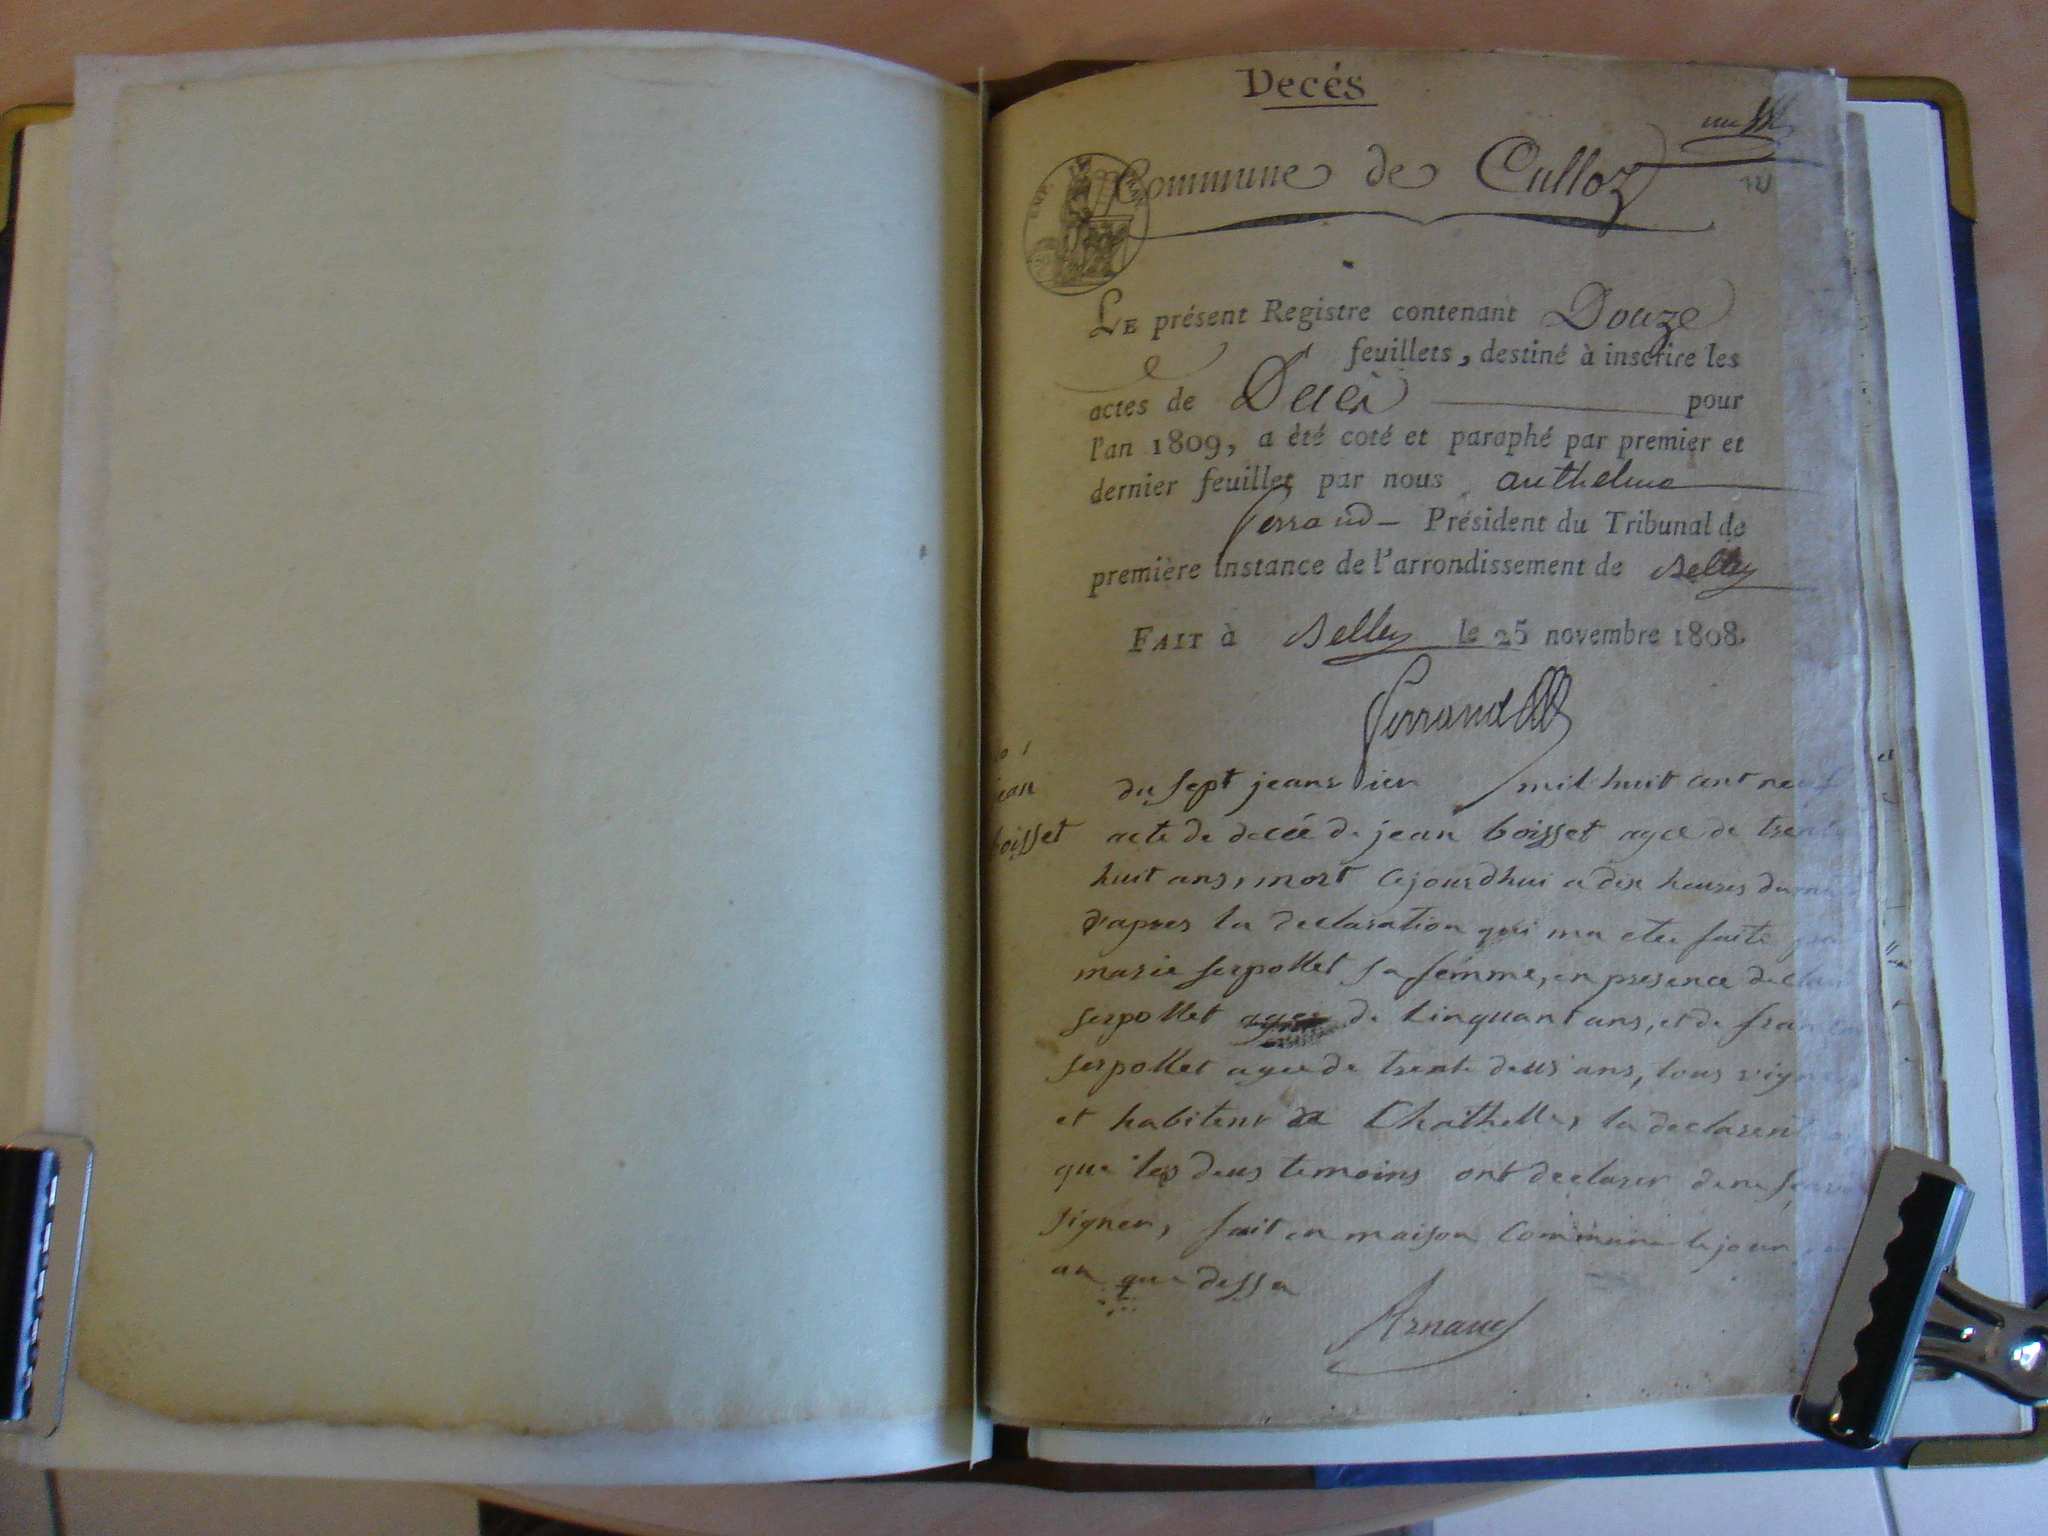 Decés
Commune de Culloz
Le présent Registre contenant Douze
feuillets, destiné à inscrire les
actes de Décès pour
l'an 1809, a été coté et paraphé par premier et
dernier feuillet par nous anthelme
ferrand Président du Tribunal de
première instance de l'arrondissement de Belley
FAIT à Belley le 25 novembre 1808.
ferrand
boisset
du sept jeanvier mil huit cent neuf
acte de decée de jean boisset agee de trente
huit ans, mort cejourdhui a dix heures du
d'apres la declaration qui ma etee faite
marie serpollet sa femme, en presence de
serpollet de cinquant ans, et de
serpollet agee de trente deus ans, tous
et habitent de la declarent
que les deus temoins ont declarer de ne
signer, fait en maison commune le jour
an que dessu
Arnaud